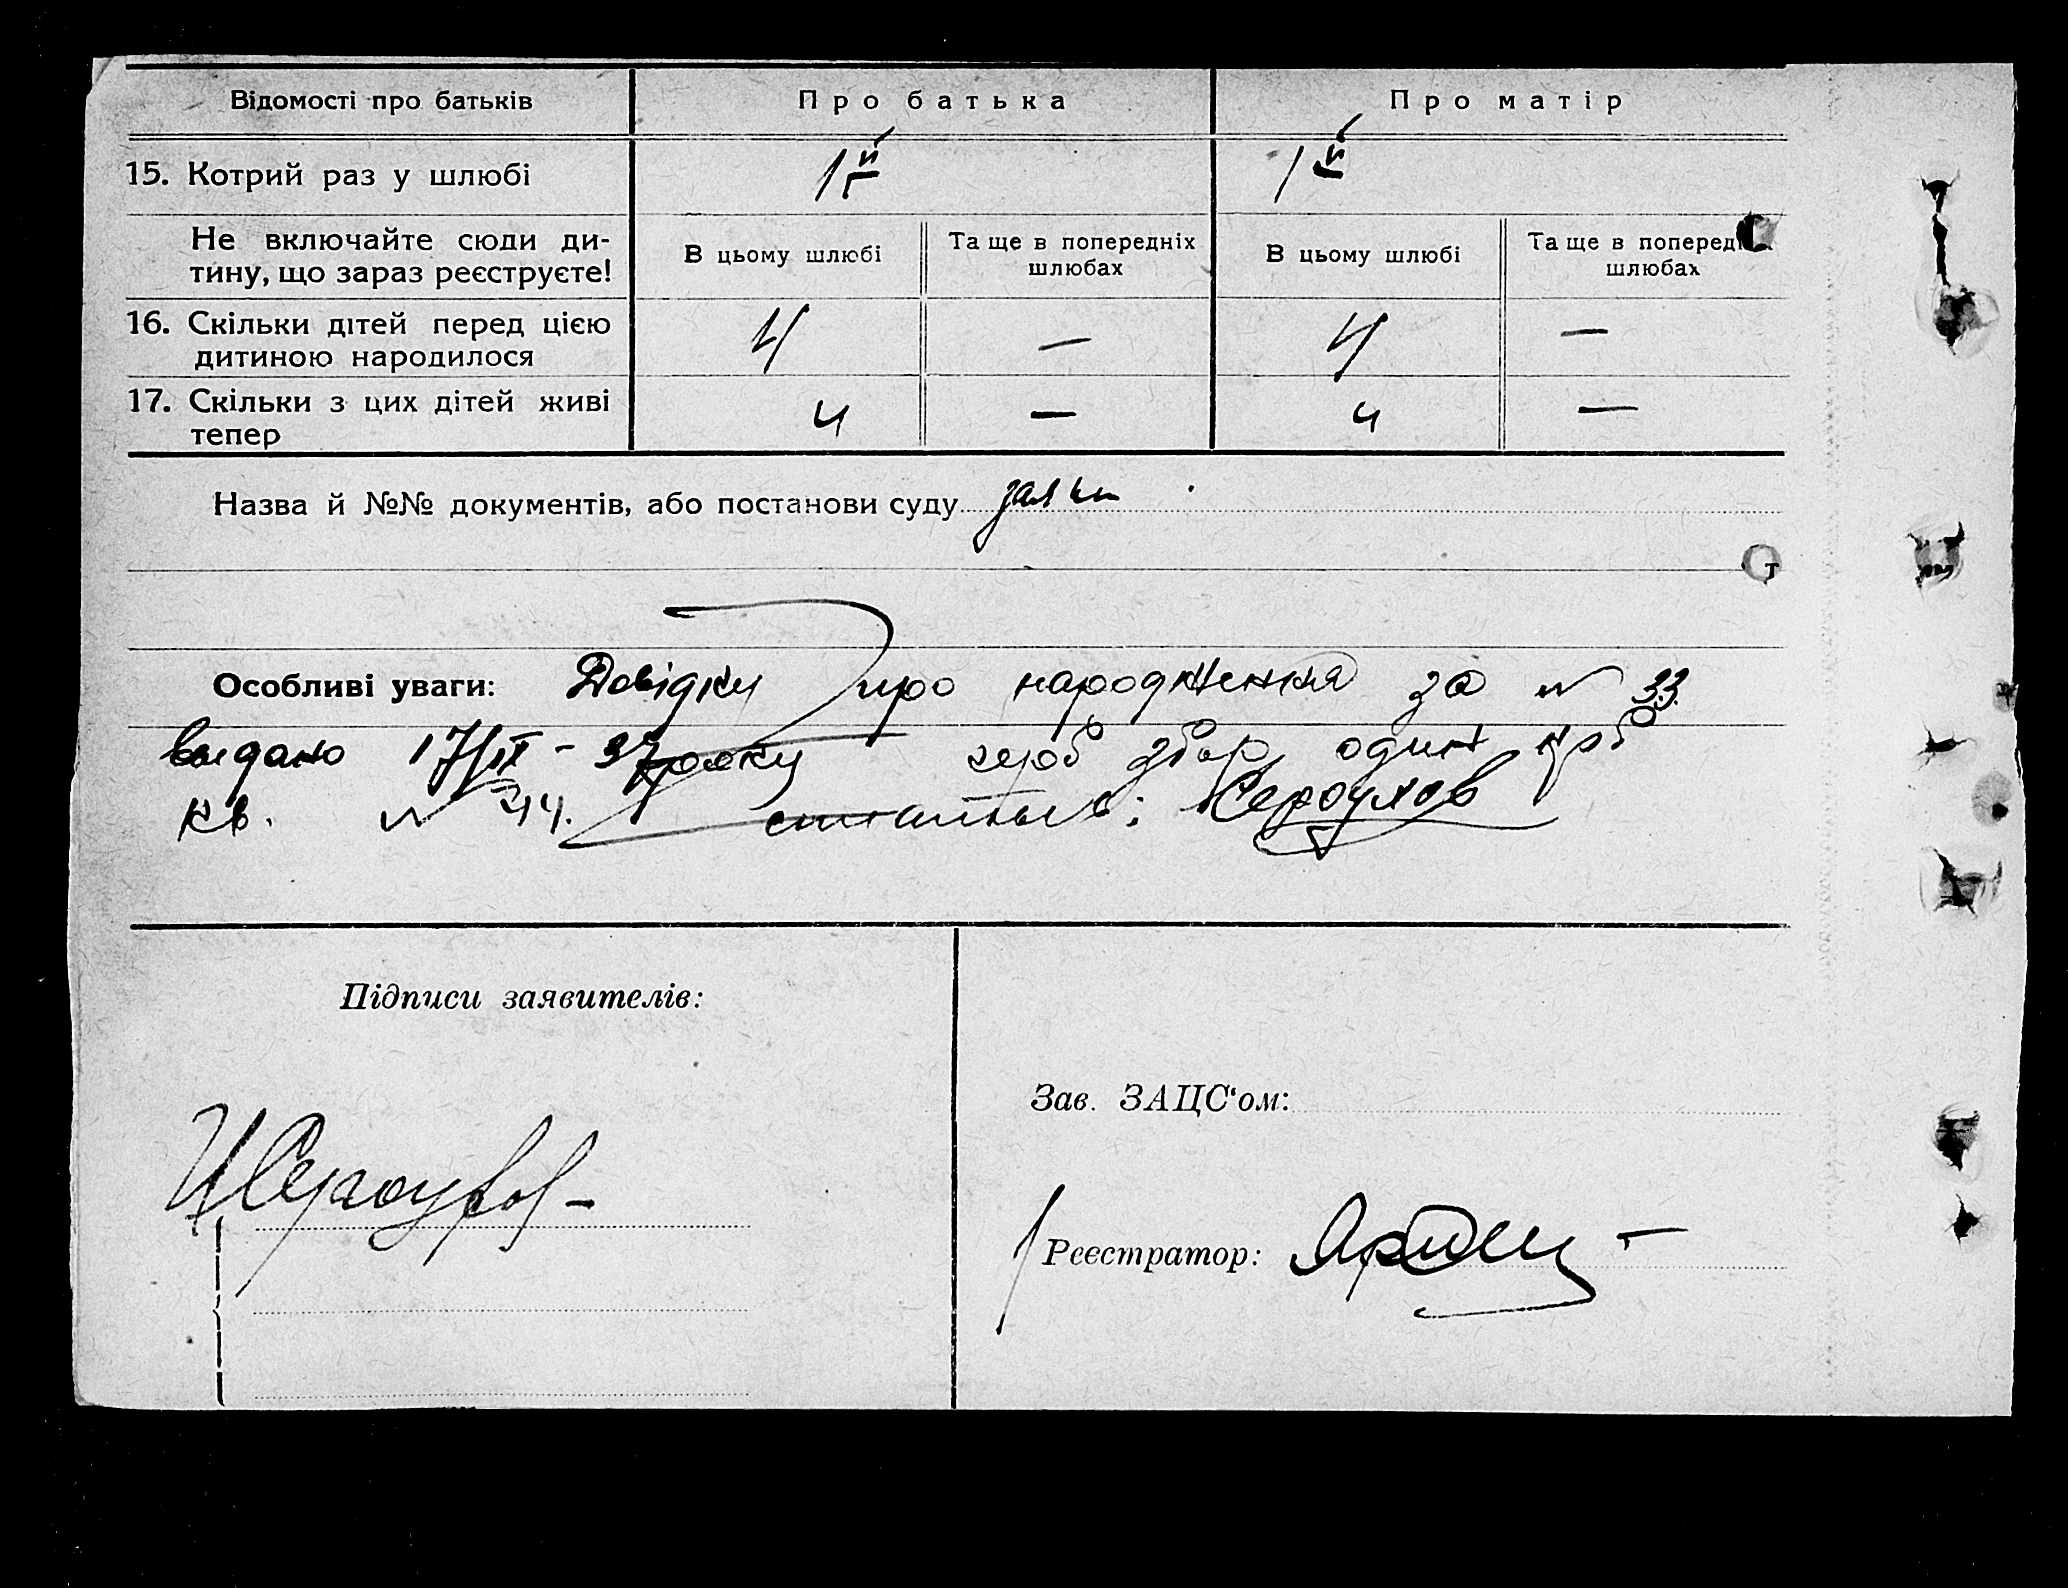 Відомості про батьків Про батька Про матір
15. Котрий раз у шлюбі 1й 1й
Не включайте сюди ди-
тину, що зараз реєструєте!
В цьому шлюбі
Та ще в попередніх
шлюбах
В цьому шлюбі
Та ще в поперед
шлюбах
16. Скільки дітей перед цією
дитиною народилося
4 — 4 —
17. Скільки з цих дітей живі
тепер
4 — 4 —
Назва й №№ документів, або постанови суду
Особливі уваги: Довідку про народження за № 33
видано 17/IX - 37 року герб збор один крб
кв. № 44.
Підписи заявителів:
Зав. ЗАЦС'ом:
Реєстратор: